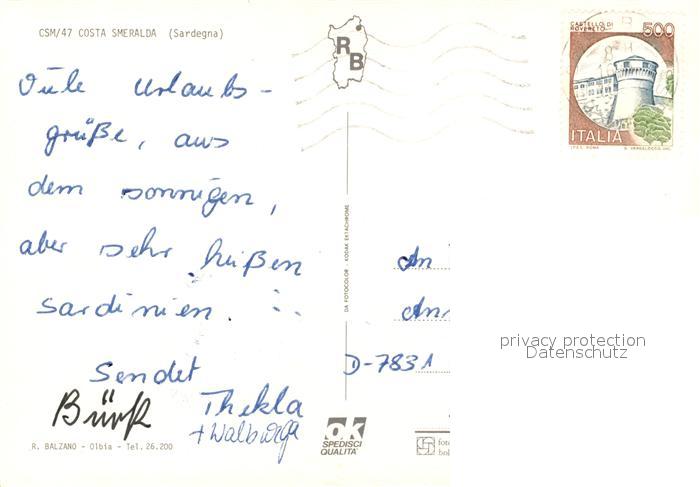 CSM/47 COSTA SMERALDA (Sardegna)
R
B
CASTELLO DI
ROVERETO
500
ITALIA
Viele Urlaubs-
grüße, aus
dem sonnigen,
aber sehr heißen
Sardinien.
Sendet
Thekla
+ Walburga
R. BALZANO - Olbia - Tel. 26.200
DA FOTOCOLOR KODAK EKTACHROME
An
D-7831
privacy protection
Datenschutz
ok
SPEDISCI
QUALITA'